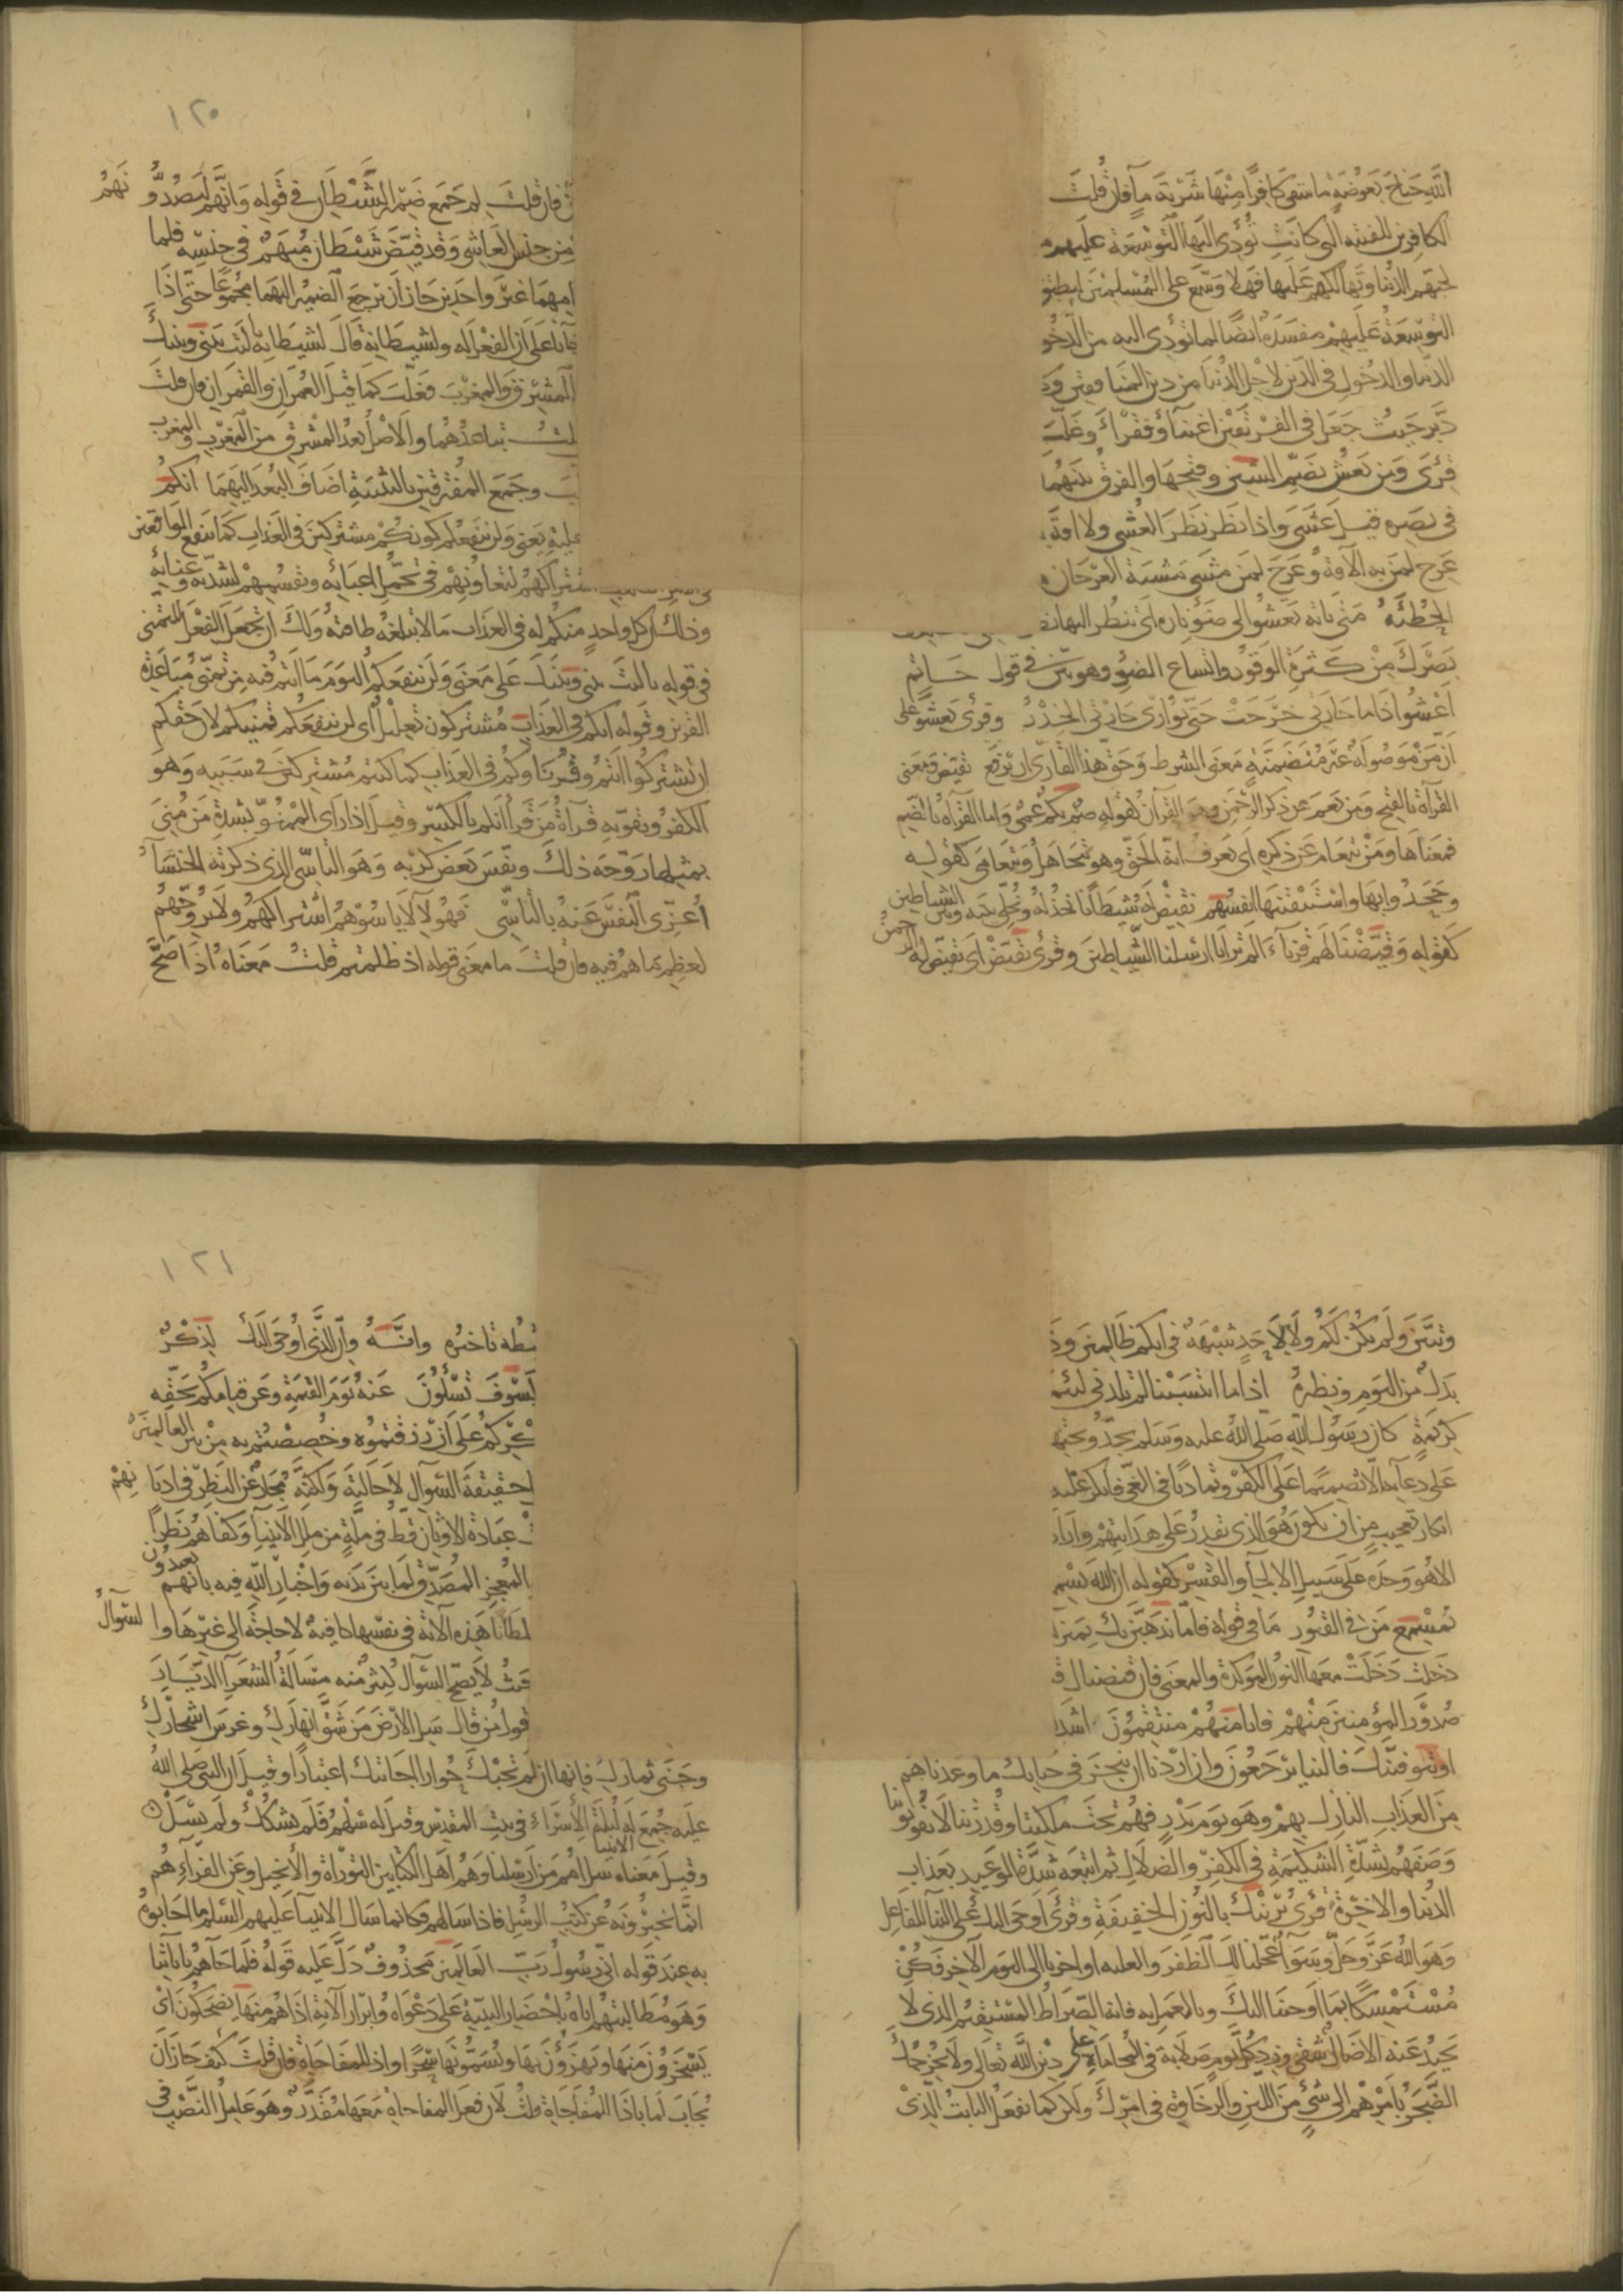 الله جناح بعوضة ما سقى كافرا منها شربة ما فان قلت
الكافرين للفتنة التي كانت تؤدي اليها التوسعة عليهم
لحبهم الدنيا وتهالكهم عليها فهلا وسع على المسلمين ليطبق
التوسعة عليهم مفسدة ايضا لما تؤدي اليه من الدخو
الدنيا والدخول في الدين لاجل الدنيا من دين المنا فقين
دبر حيث جعل في الفريقين اغنيآ وفقراء وغلب
قرى ومن يعش بضم الشين وفتحها والفرق بينهما
في بصره قيل عشى واذا نظر نظر العشى ولا افة
عرج لمن به الآفة وعرج لمن مشى مشية العرجان
الحطئة متى تاته تعشو الى ضوء ناره اى تنظر اليها
بصرك من كثرة الوقود واتساع الضوء وهو بين في قول حاتم
اعشوا اذا ما جارتي خرجت حتى يوارى جارتي الخدر وقرى يعشو على
ان من موصولة غير متضمنة معنى الشرط وحق هذا القارى ان يرفع نقيض ومعنى
القرآة بالفتح ومن يعم عن ذكر الرحمن وهو القرآن لقوله صم بكم عمى واما القرآة بالضم
فمعناها ومن يتعام عن ذكره اى يعرف انه الحق وهو يتجاهل ويتعامى كقوله
وجحدوا بها واستيقنتها انفسهم نقيض له شيطانا نخذله ونخلي بينه وبين الشياطين
كقوله وقيضنا لهم قرنآء الم تر انا ارسلنا الشياطين وقرى يقيض اى يقيض له الرحمن
١٢٠
فان قلت لم جمع ضمير الشيطان في قوله وانهم ليصدونهم
من جنس العاشى وقد قيض شيطان مبهم في جنسه فلما
ابهما غير واحدين جاز ان يرجع الضمير اليهما مجموعا حتى اذا
جآنا على ان الفعل له ولشيطانه قال لشيطانه يا ليت بيني وبينك
المشرق والمغرب فغلب كما قيل العمران والقمران فان قلت
قلت تباعدهما والاصل بعد المشرق من المغرب والمغرب
وجمع المفترقين بالتثنية اضاف البعد اليهما انكم
علية يعنى ولن ينفعكم كونكم مشتركين في العذاب كما ينفع الواقعين
اشتراكهم لتعاونهم في تحمل اعبائه وتقسمهم لشدته وعنائه
وذلك ان كل واحد منكم له في العذاب ما لا تبلغه طاقته ولك ان تجعل الفعل للتمنى
في قوله يا ليت بيني وبينك على معنى ولن ينفعكم اليوم ما انتم فيه من تمنى مباعدة
القرين وقوله انكم في العذاب مشتركون تعليل اى لن ينفعكم تمنيكم لان حقكم
ان تشتركوا انتم وقرناوكم في العذاب كما كنتم مشتركين في سببه وهو
الكفر وتقويه قرآة من قرأ انكم بالكسر وقيل اذا راى الممنو بشدة من منى
بمثلها روحه ذلك ونفس بعض كربه وهو التاسى الذى ذكرته الخنسآ
اعزى النفس عنه بالتاسى فهولآ لا ياسوهم اشتراكهم ولا يروحهم
لعظم ما هم فيه فان قلت ما معنى قوله اذ ظلمتم قلت معناه اذ صح
وتبين ولم يكن لكم ولا لاحد شبهة في انكم ظالمين
بدل من اليوم ونظره اذا ما انتسبنا لم تلدني لئيمة
كريمة كان رسول الله صلى الله عليه وسلم يجد
على دعايه الا تصميما على الكفر وتماديا في الغى فانكر عليه
انكار تعجيب من ان يكون هو الذى يقدر على هدايتهم واراد
الا هو وحده على سبيل الالجآ والقسر كقوله ان الله يسمع
بمسمع من في القبور ما في قوله فاما نذهبن بك بمنزلة
دخلت دخلت معها النون الموكدة والمعنى فان قبضناك
صدور المؤمنين منهم فانا منهم منتقمون اشد
او نتوفينك فالينا يرجعون وان اردنا ان ننجز في حياتك ما وعدناهم
من العذاب النازل بهم وهو يوم بدر فهم تحت ملكتنا وقدرتنا لا يفوتوننا
وصفهم بشدة الشكيمة في الكفر والضلال ثم اتبعه شدة الوعيد بعذاب
الدنيا والاخرة قرى نرينك بالنون الخفيفة وقرى اوحى اليك على البنآ للفاعل
وهو الله عز وجل وسوآ عجلنا لك الظفر والغلبه او اخرنا الى اليوم الآخر فكن
مستمسكا بما اوحينا اليك وبالعمل به فانه الصراط المستقيم الذى لا
يحيد عنه الا ضال شقى وزد كل يوم صلابة في المحاماة على دين الله تعالى ولا يخرجك
الضجر بامرهم الى شئ من اللين والرخاوة في امرك ولكن كما يفعل الثابت الذى
١٢١
تاخره وانه وان الذى اوحى اليك لذكر
لسوف تسئلون عنه يوم القيمة وعن قيامكم بحقه
شكركم على ان رزقتموه وخصصتم به من بين العالمين
حقيقة السوال لاحالته ولكنه مجاز عن النظر في اديانهم
عبادة الاوثان قط في ملة من ملل الانبيآ وكفاه نظرا
المعجز المصدق لما بين يديه واخبار الله فيه بانهم يعبدون
سلطانا هذه الآية في نفسها كافية لا حاجة الى غيرها والسوال
حيث لا يصح السوال كثير منه مسالة الشعرآ الديار
قول من قال سل الارض من شق انهارك وغرس اشجارك
وجنى ثمارك فانها ان لم تجبك حوارا اجابتك اعتبارا وقيل ان النبى صلى الله
عليه جمع له الانبيا ليلة الاسراء في بيت المقدس وقيل له سلهم فلم يشكك ولم يسل
وقيل معناه سل امم من ارسلنا وهم اهل الكتابين التوراة والانجيل وعن الفراء هم
انما يخبرونه عن كتب الرسل فاذا سالهم فكانما سال الانبيآ عليهم السلم ما اجابوه
به عند قوله انى رسول رب العالمين محذوف دل عليه قوله فلما جآهم باياتنا
وهو مطالبتهم اياه باحضار البينة على دعواه وابراز الآية اذا هم منها يضحكون اى
يسخرون منها ويهزؤن بها ويسمونها سحرا واذا للمفاجاة فان قلت كيف جاز ان
يجاب لما باذا المفاجاة قلت لان فعل المفاجاة معها مقدر وهو عامل النصب في